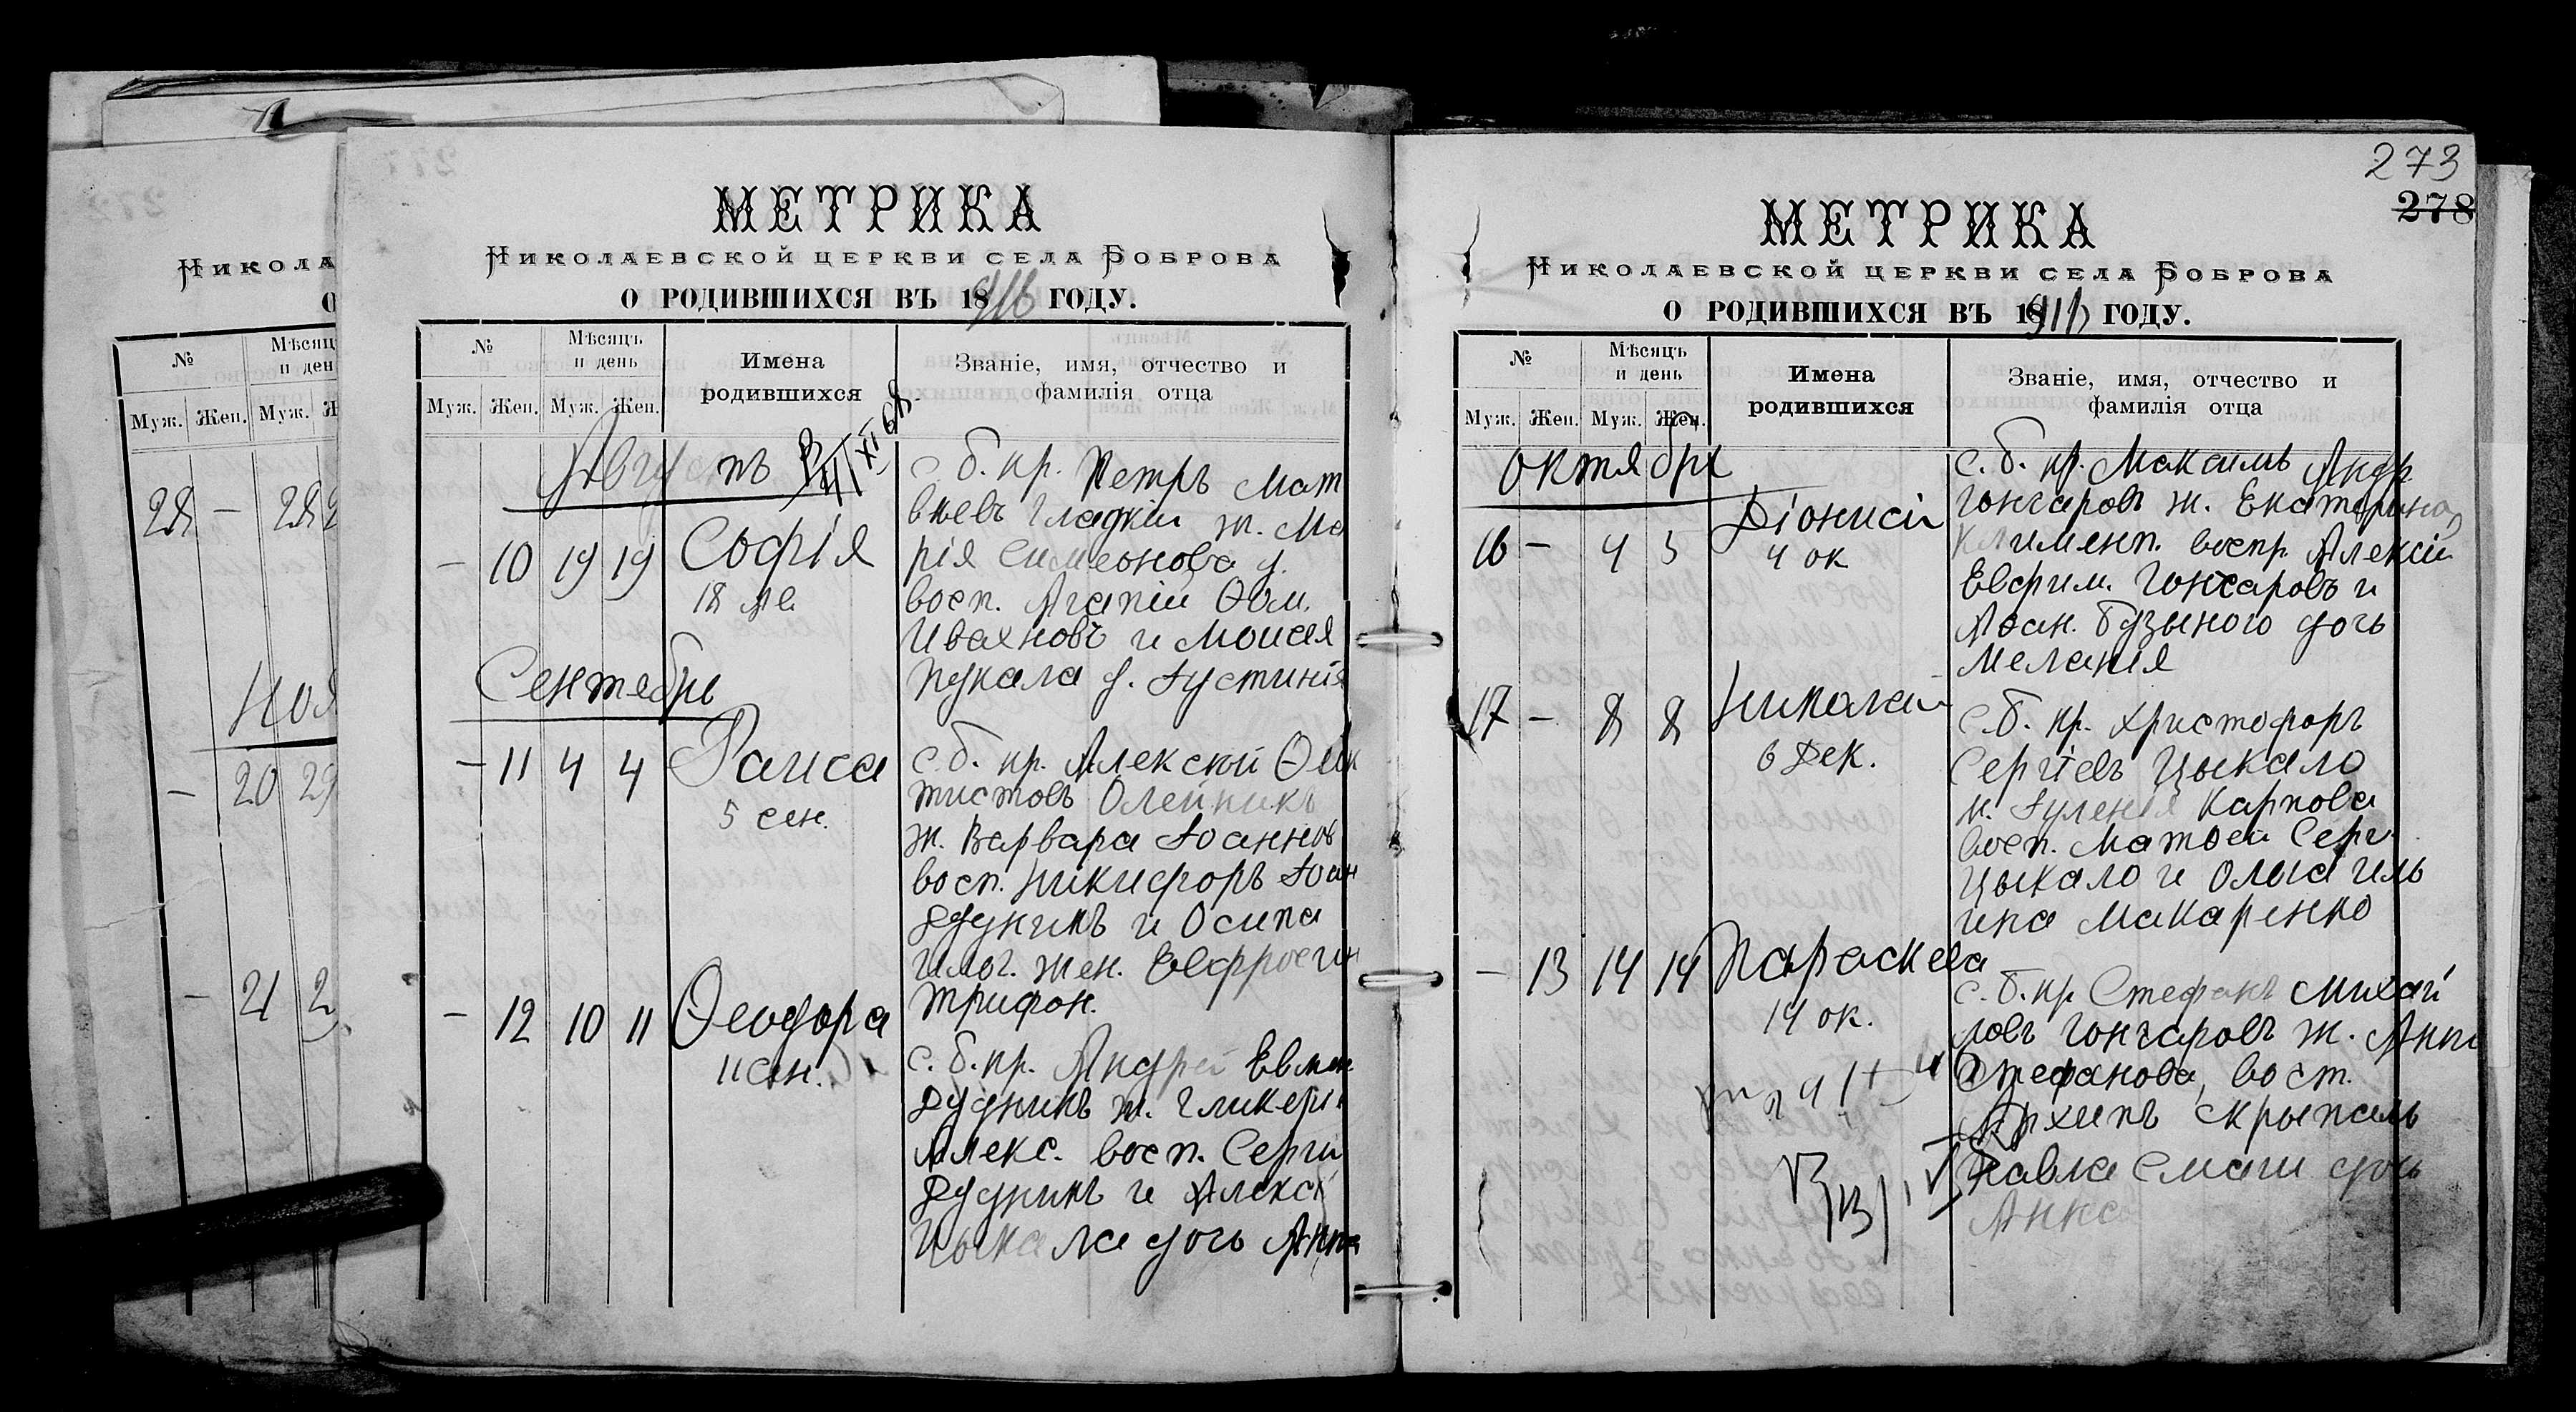 Никола
О
№
Мѣсяц
и ден
Муж. Жен. Муж. Ж
28 — 28 2
Ноя
— 20 29
— 21 2
МЕТРИКА
Николаевской церкви села Боброва
О РОДИВШИХСЯ ВЪ 1916 ГОДУ.
№
Мѣсяцъ и день
Имена родившихся
Званіе, имя, отчество и фамилія отца
Муж. Жен. Муж. Жен.
Августъ
— 10 19 19 София
18 ав.
с. б. кр. Петръ Мат
вѣевъ Гладкій ж. Ма
рія Симеонова у.
восп. Агапій Ѳом.
Ивахновъ и Моисея
Пукала д. Іустинія
Сентябрь
— 11 4 4 Раиса
5 сен.
с. б. кр. Алексѣй Ѳеок
тистовъ Олейникъ
ж. Варвара Іоаннов
восп. Никифоръ Іоан
Дудникъ и Осипа
жен. Евфросин
Трифон.
— 12 10 11 Ѳеодора
11 сен.
с. б. кр. Андрей Евмен
Дудникъ ж. Гликерія
Алекс. восп. Сергій
Дудникъ и Алексѣ
Цыкала дочь Анна
273
278
МЕТРИКА
Николаевской церкви села Боброва
О РОДИВШИХСЯ ВЪ 1916 ГОДУ.
№
Мѣсяцъ и день
Имена родившихся
Званіе, имя, отчество и фамилія отца
Муж. Жен. Муж. Жен.
октября
16 — 4 5 Діонисій
4 ок
с. б. кр. Максимъ Андр.
Гончаровъ ж. Екатерина
Климент. воспр. Алексій
Евфим. Гончаровъ и
Аоан. Бузыного дочь
Меланія
17 — 8 8 Николай
6 Дек.
с. б. кр. Христофоръ
Сергіевъ Цыкало
ж. Іуленія Карпова
восп. Матѳей Серг.
Цыкало и Ольга Иль
ина Макаренко
— 13 14 14 Параскева
14 ок.
с. б. кр Стефанъ Михай
ловъ Гончаровъ ж. Анна
Стефанова, восп.
Архипъ Скрыпаль
Павла Смаги дочь
Анна